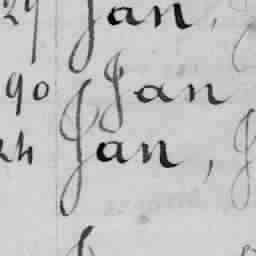 29 Jan.
90 Jan
24 Jan,